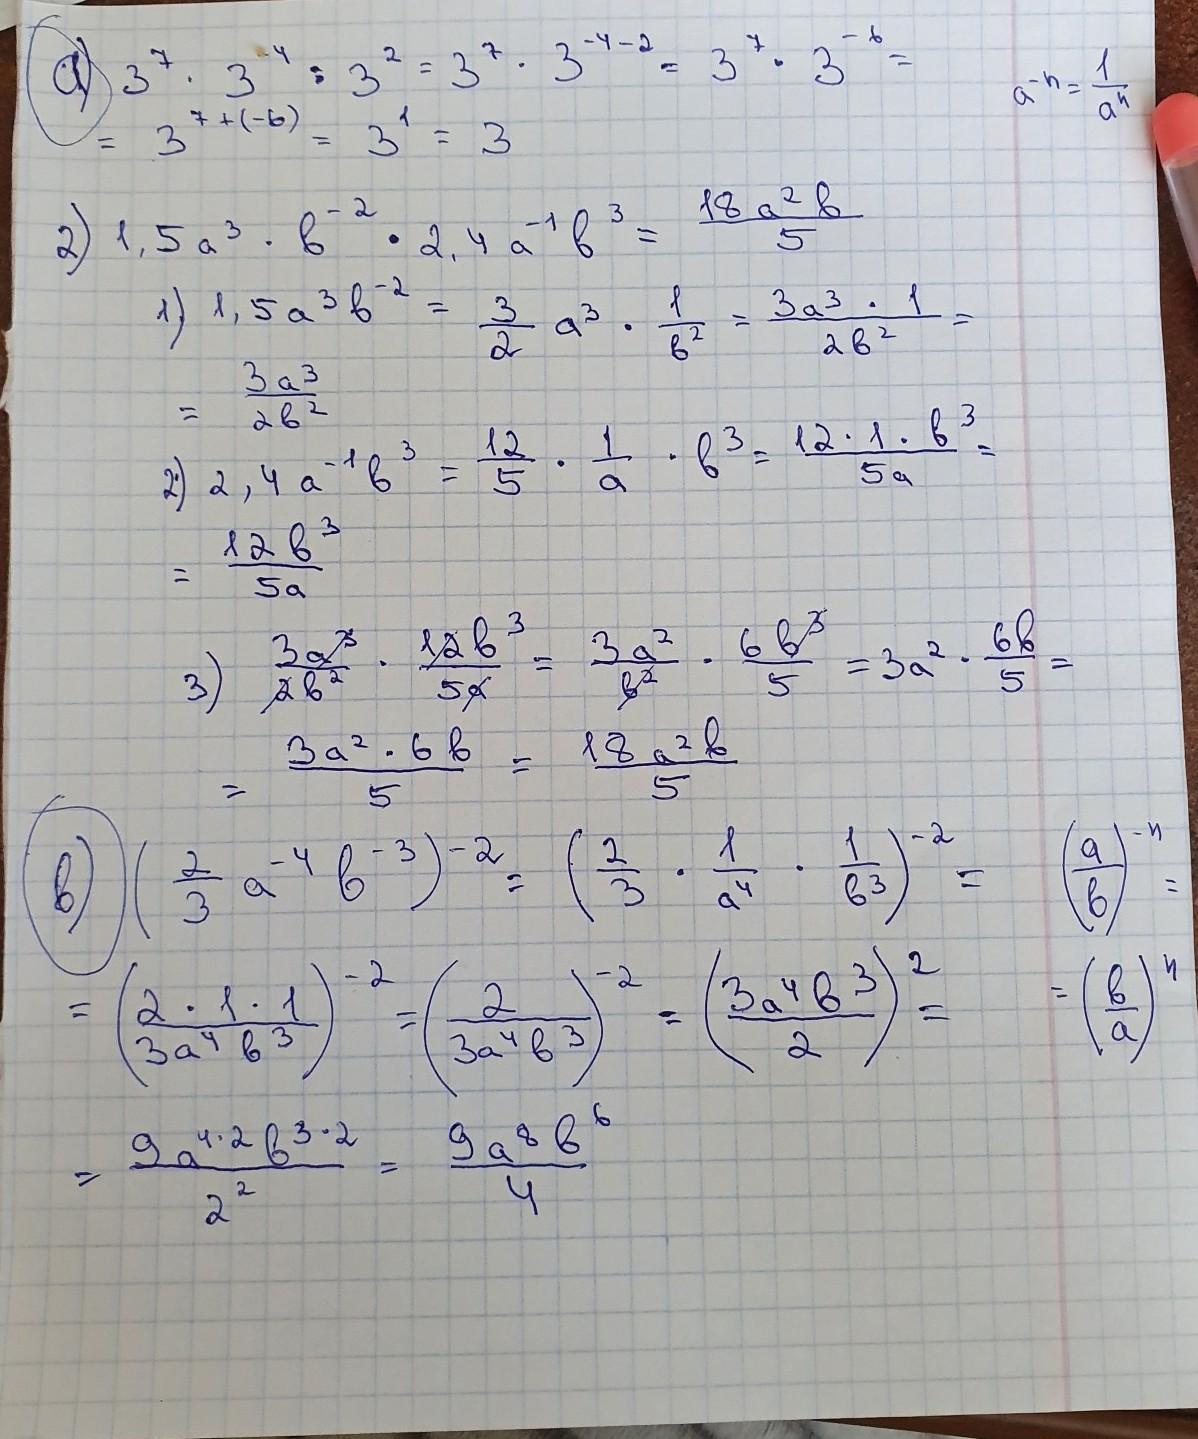 а) 3⁷ · 3⁻⁴ : 3² = 3⁷ · 3⁻⁴⁻² = 3⁷ · 3⁻⁶ =
a⁻ⁿ = 1/aⁿ
= 3⁷⁺⁽⁻⁶⁾ = 3¹ = 3
2) 1,5a³ · b⁻² · 2,4a⁻¹b³ = 18a²b/5
1) 1,5a³b⁻² = 3/2 a³ · 1/b² = 3a³ · 1/2b² =
= 3a³/2b²
2) 2,4a⁻¹b³ = 12/5 · 1/a · b³ = 12 · 1 · b³/5a =
= 12b³/5a
3) 3a³/2b² · 12b³/5a = 3a²/b² · 6b³/5 = 3a² · 6b/5 =
= 3a² · 6b/5 = 18a²b/5
в) (2/3 a⁻⁴b⁻³)⁻² = (2/3 · 1/a⁴ · 1/b³)⁻² =
(a/b)⁻ⁿ =
= (2 · 1 · 1/3a⁴b³)⁻² = (2/3a⁴b³)⁻² = (3a⁴b³/2)² =
= (b/a)ⁿ
= 9a⁴·²b³·²/2² = 9a⁸b⁶/4